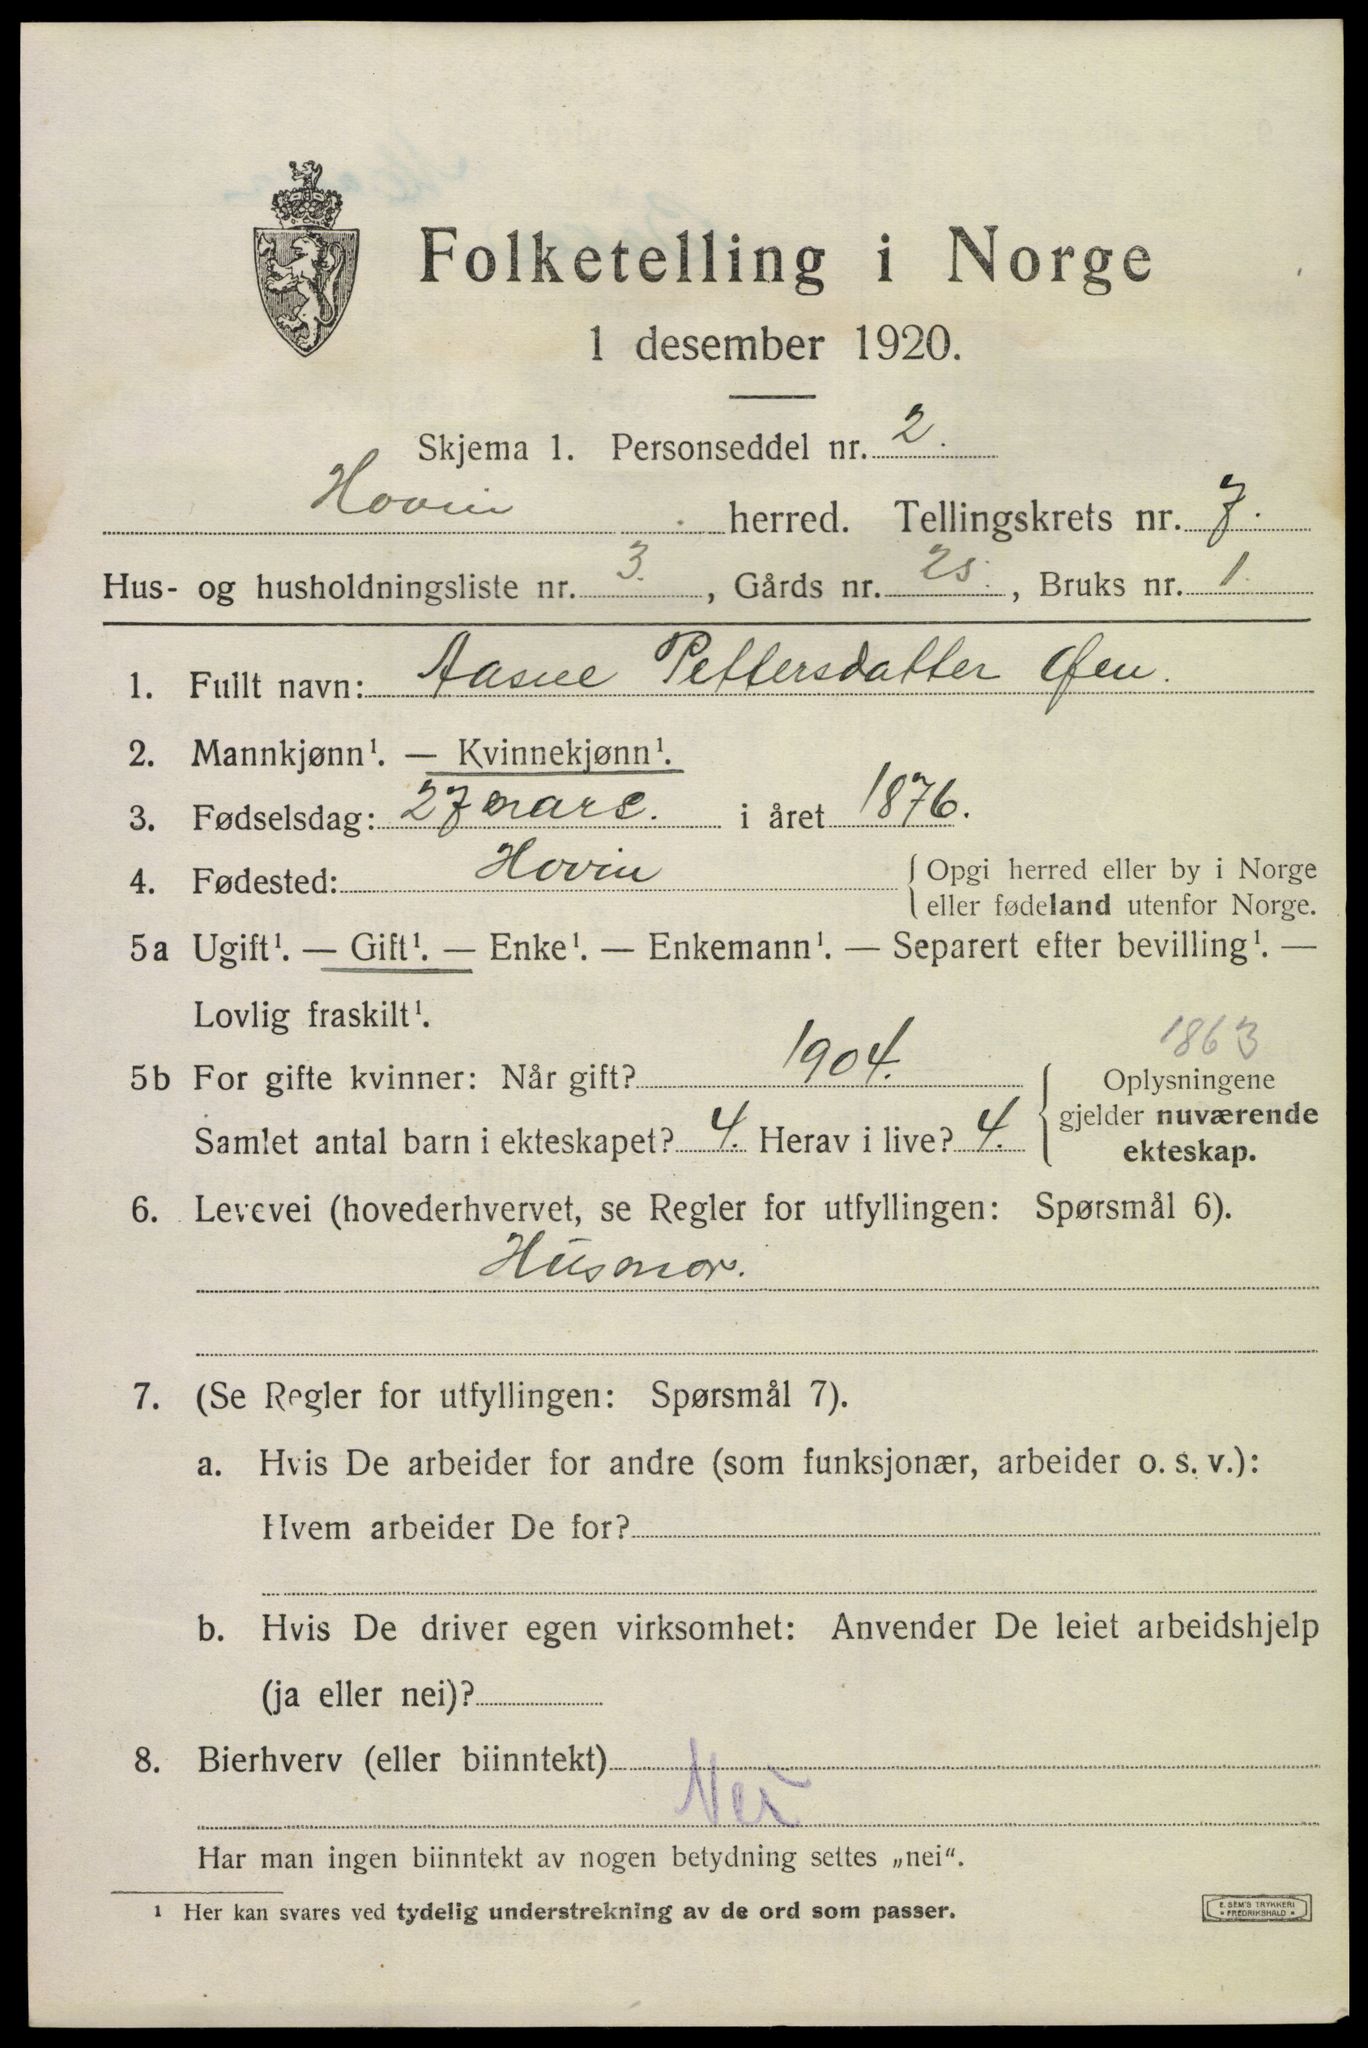 Folketelling i Norge
1 desember 1920.
Skjema 1. Personseddel nr. 2.
Hovin herred. Tellingskrets nr. 7.
Hus- og husholdningsliste nr. 3., Gårds nr. 25., Bruks nr. 1.
1. Fullt navn: Aasne Pettersdatter Øen.
2. Mannkjønn¹. — Kvinnekjønn¹.
3. Fødselsdag: 27 mars. i året 1876.
4. Fødested: Hovin { Opgi herred eller by i Norge
eller fødeland utenfor Norge.
5a Ugift¹. — Gift¹. — Enke¹. — Enkemann¹. — Separert efter bevilling¹. —
Lovlig fraskilt¹.
1863
5b For gifte kvinner: Når gift? 1904. { Oplysningene
gjelder nuværende
Samlet antal barn i ekteskapet? 4. Herav i live? 4.
ekteskap.
6. Levevei (hovederhvervet, se Regler for utfyllingen: Spørsmål 6).
Husmor.
7. (Se Regler for utfyllingen: Spørsmål 7).
a. Hvis De arbeider for andre (som funksjonær, arbeider o. s. v.):
Hvem arbeider De for?
b. Hvis De driver egen virksomhet: Anvender De leiet arbeidshjelp
(ja eller nei)?
8. Bierhverv (eller biinntekt)
Nei
Har man ingen biinntekt av nogen betydning settes „nei“.
¹ Her kan svares ved tydelig understrekning av de ord som passer.
E. SEM'S TRYKKERI
* FREDRIKSHALD *